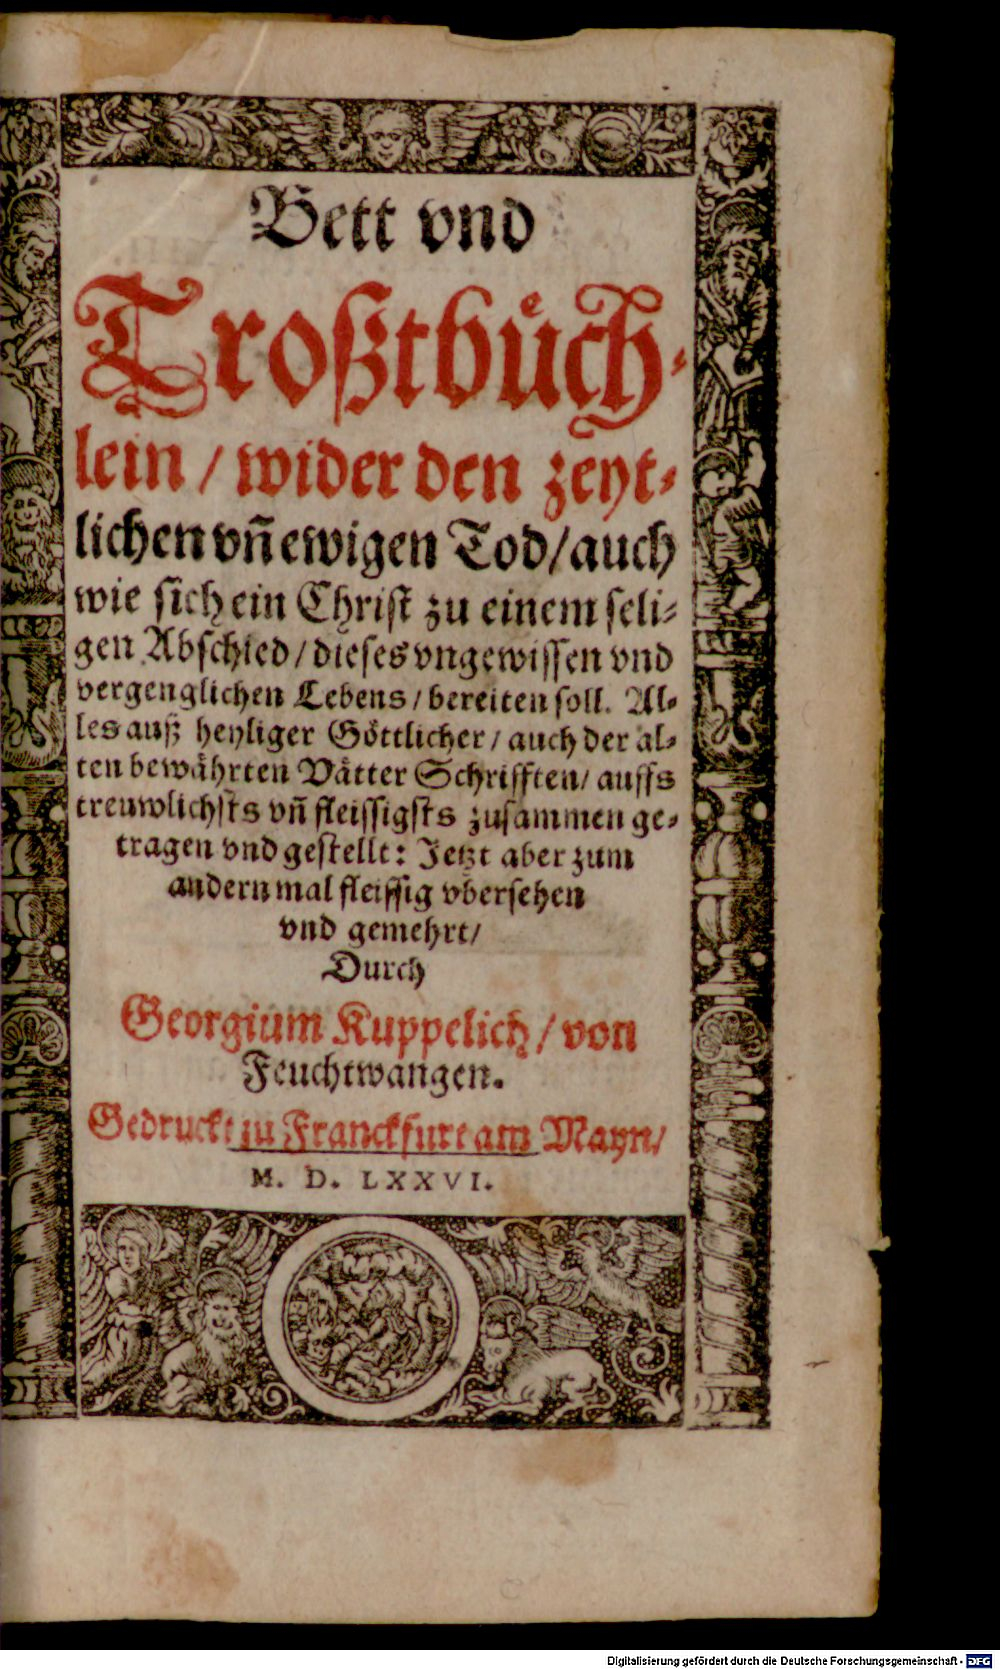 Bett vnd
Troßtbuͤch⸗
lein / wider den zeyt⸗
lichen vñ ewigen Tod / auch
wie sich ein Christ zu einem seli⸗
gen Abschied / dieses vngewissen vnd
vergenglichen Lebens / bereiten soll. Al⸗
les auß heyliger Göttlicher / auch der al⸗
ten bewährten Vätter Schrifften / auffs
treuwlichsts vñ fleissigsts zusammen ge⸗
tragen vnd gestellt: Jetzt aber zum
andern mal fleissig vbersehen
vnd gemehrt /
Durch
Georgium Kuppelich / von
Feuchtwangen.
Gedruckt zu Franckfurt am Mayn /
M. D. LXXVI.
Digitalisierung gefördert durch die Deutsche Forschungsgemeinschaft - DFG